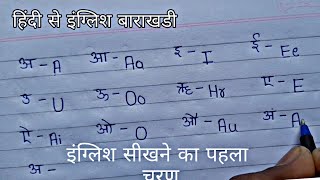 हिंदी से इंग्लिश बाराखडी
अ - A आ - Aa इ - I ई - Ee
उ - U ऊ - Oo ऋ - Hr ए - E
ऐ - Ai ओ - O औ - Au अं - A
अ -
इंग्लिश सीखने का पहला
चरण